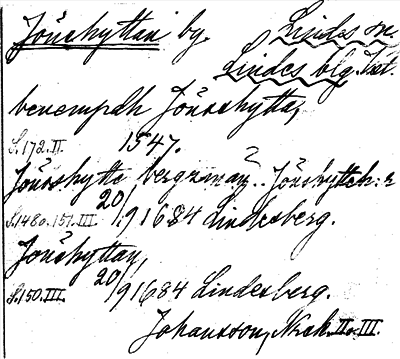 Jönshyttan by. Lindes sn.
Lindes blg. Vst.
benempdh Jönsehytta,
S. 172. II. 1547.
Jönshytte bergzman ?
S. 148 o. 151. III. 20/9 1684 Lindesberg.
Jönshyttan,
S. 150. III. 20/9 1684 Lindesberg.
Johansson, Noraskog II o. III.